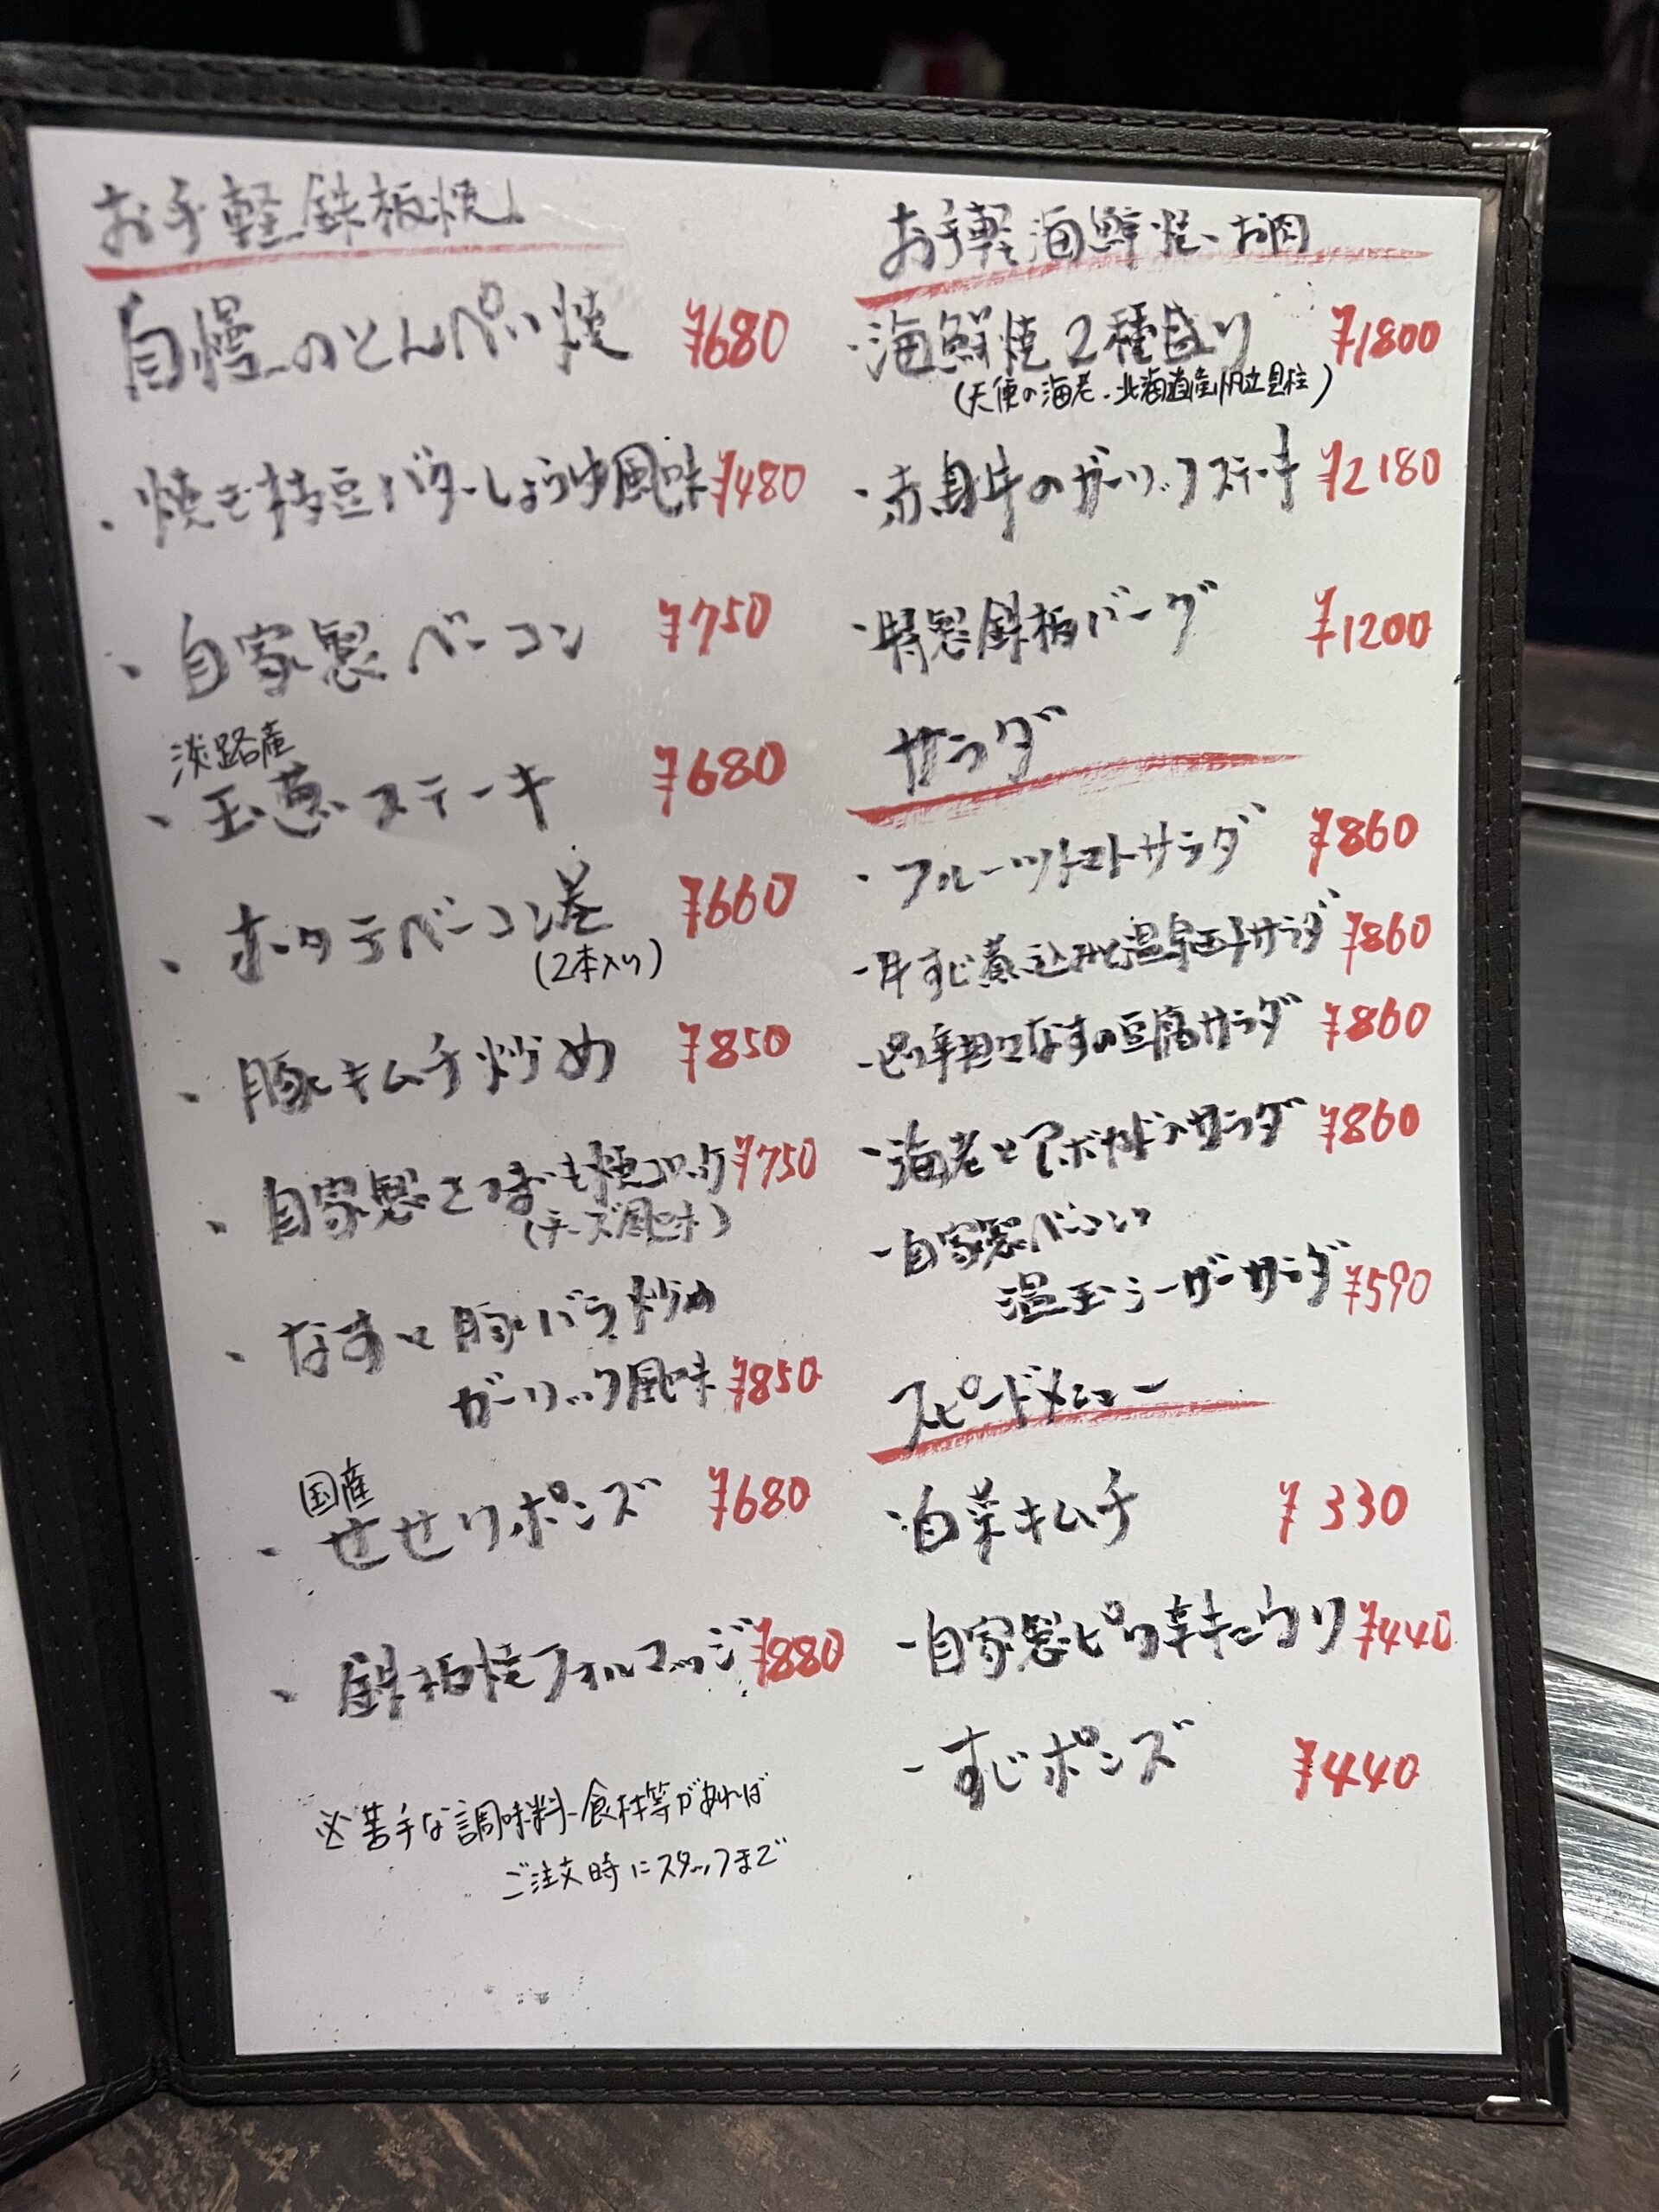 お手軽鉄板焼
自慢のとんぺい焼 ¥680
・焼き枝豆バターしょうゆ風味 ¥480
・自家製ベーコン ¥750
淡路産
・玉葱ステーキ ¥680
・ホタテベーコン巻 ¥660
(2本入り)
・豚キムチ炒め ¥850
・自家製さつまいも焼コロッケ ¥750
(チーズ風味)
・なすと豚バラ炒め
ガーリック風味 ¥850
国産
・せせりポンズ ¥680
・鉄板焼フォルマッジ ¥880
※苦手な調味料・食材等があれば
ご注文時にスタッフまで
お手軽海鮮焼、お肉
・海鮮焼2種盛り ¥1800
(天使の海老・北海道産帆立貝柱)
・赤身牛のガーリックステーキ ¥2180
・特製鉄板バーグ ¥1200
サラダ
・フルーツトマトサラダ ¥860
・牛すじ煮込みと温泉玉子サラダ ¥860
・ピリ辛坦々なすの豆腐サラダ ¥860
・海老とアボカドのサラダ ¥860
・自家製ベーコン
温玉シーザーサラダ ¥590
スピードメニュー
・白菜キムチ ¥330
・自家製ピリ辛キュウリ ¥440
・すじポンズ ¥440